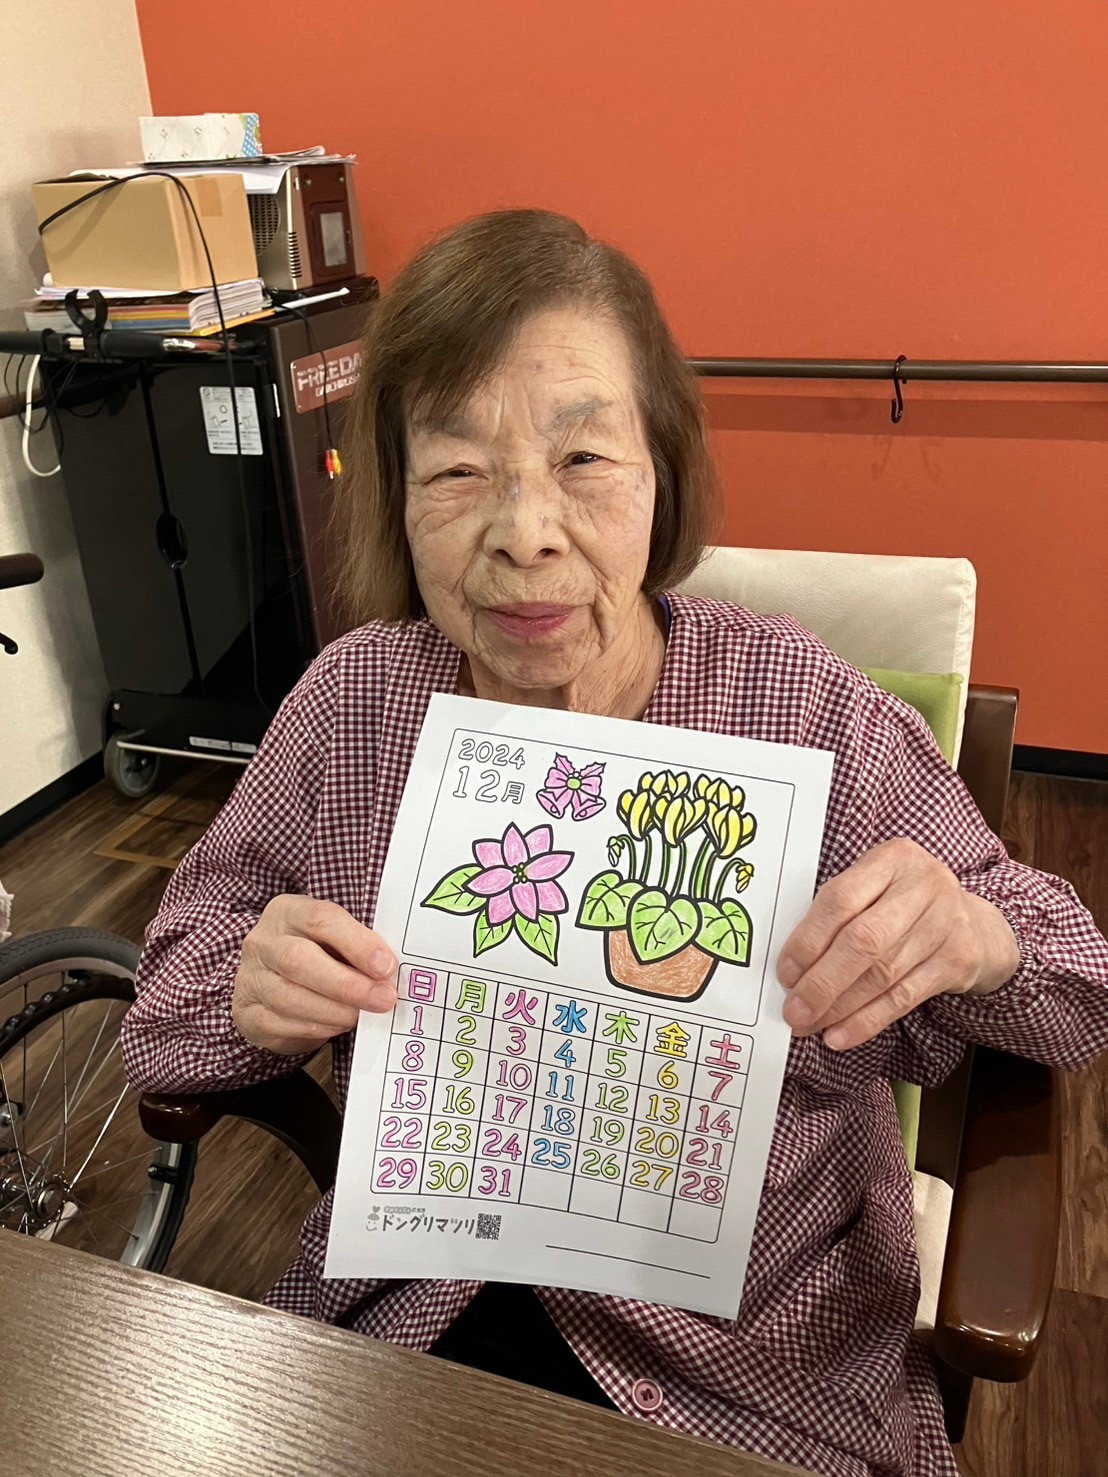 FREEDA
DAIICHIKOSHO
2024
12月
日 月 火 水 木 金 土
1 2 3 4 5 6 7
8 9 10 11 12 13 14
15 16 17 18 19 20 21
22 23 24 25 26 27 28
29 30 31
ドングリマツリ